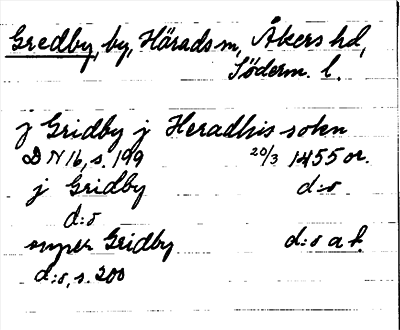 Gredby, by, Härads sn, Åkers hd,
Söderm. l.
j Gridby j Heradhis sokn
D N 16, s. 199 20/3 1455 or.
j Gridby d:o
d:o
super Gridby d:o a.f.
d:o, s. 200